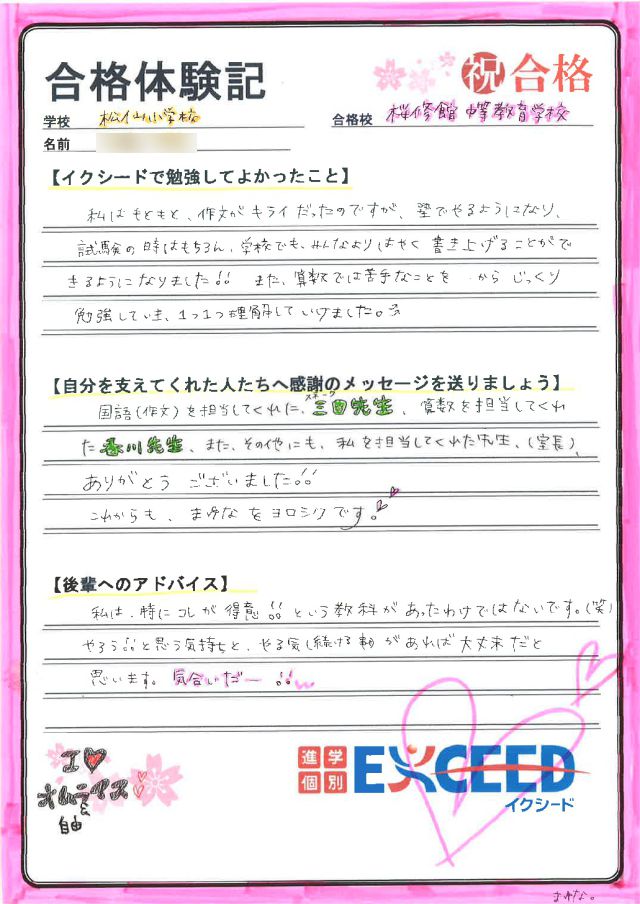 合格体験記
祝 合格
学校 松仙小学校
合格校 桜修館中等教育学校
名前
【イクシードで勉強してよかったこと】
私はもともと、作文がキライだったのですが、塾でやるようになり、
試験の時はもちろん、学校でも、みんなよりはやく書き上げることがで
きるようになりました!! また、算数では苦手なことを 一からじっくり
勉強していき、1つ1つ理解していけました。
【自分を支えてくれた人たちへ感謝のメッセージを送りましょう】
国語(作文)を担当してくれた、三田先生、算数を担当してくれ
た香川先生、また、その他にも、私を担当してくれた先生、(室長)、
ありがとう ございました!!
これからも、まゆなをヨロシクです。
【後輩へのアドバイス】
私は、特にコレが得意!!という教科があったわけではないです。(笑)
やろう!!と思う気持ちと、やる気(続ける事)があれば大丈夫だと
思います。気合いだー!!
I ♥
オムライス
自由
進学
個別
EXCEED
イクシード
まゆな。